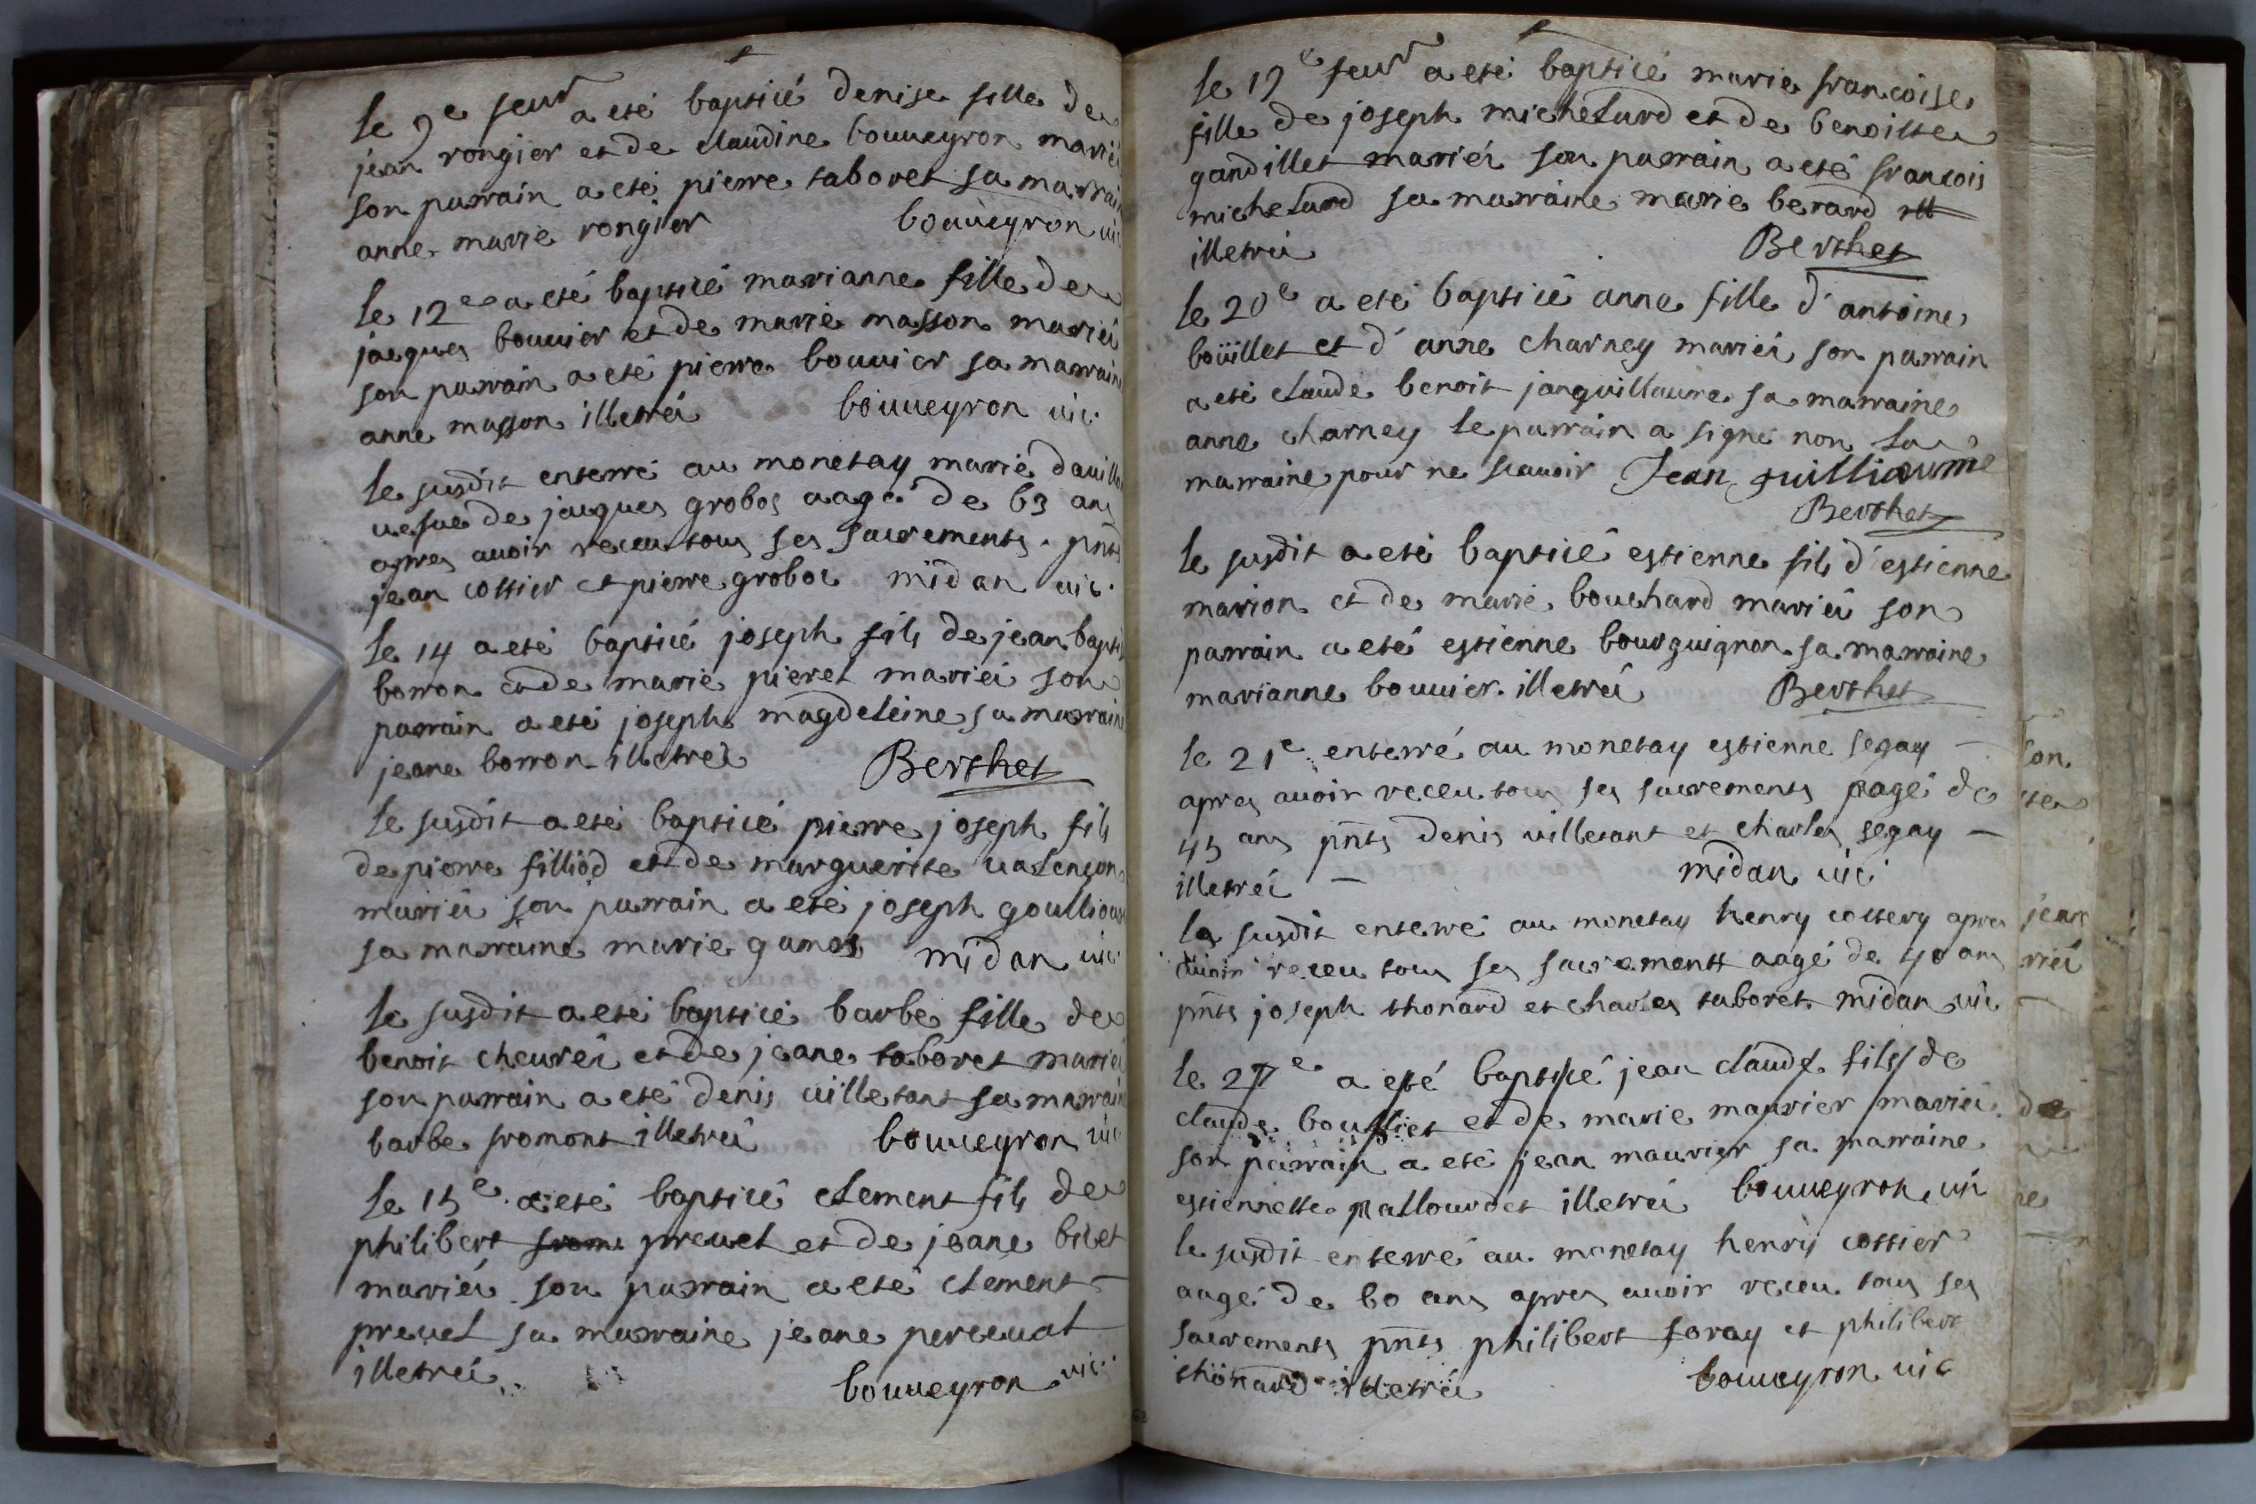 le 9e feur a eté baptizé denise fille de
jean rongier et de claudine bouueyron mariés
son parrain a eté pierre taboret sa marrain
anne marie rongier bouueyron uic
le 12e a eté baptizé marianne fille de
jacques bouuier et de marie masson mariés
son parrain a eté pierre bouuier sa marraine
anne masson illetrés bouueyron uic.
le susdit enterré au monetay marie
uefue de jacques grobos aagé de 63 ans
apres auoir receu tous ses sacrements. pnts
jean cottier et pierre groboz midan uic.
le 14 a eté baptizé joseph fils de jean baptis
borron et de marie pieret mariés son
parrain a eté joseph magdeleine sa marraine
jeane borron illetrés Berthet
le susdit a eté baptizé pierre joseph fils
de pierre filliod et de marguerite ualençon
mariés son parrain a eté joseph goullioux
sa marraine marie midan uic
le susdit a eté baptizé barbe fille de
benoit cheurei et de jeane taboret mariés
son parrain a eté denis uilletant sa marrain
barbe fromont illetrés bouueyron uic
le 15e a eté baptizé clement fils de
philibert from preuel et de jeane bilet
mariés son parrain a eté clement
preuel sa marraine jeane perceual
illetrés bouueyron uic.
le 19e feur a eté baptizé marie francoise
fille de joseph michelard et de benoitte
gandillet mariés son parrain a eté francois
michelard sa marraine marie berard
illetrés Berthet
le 20e a eté baptizé anne fille d'antoine
boüillet et d'anne charney mariés son parrain
a eté claude benoit janguillaume sa marraine
anne charney le parrain a signé non la
marraine pour ne scauoir Jean guilliaume
Berthet
le susdit a eté baptizé estienne fils d'estienne
marion et de marie bouchard mariés son
parrain a eté estienne bourguignon sa marraine
marianne bouuier illetrés Berthet
le 21e enterré au monetay estienne segay
apres auoir receu tous ses sacrements aagé de
45 ans pnts denis uilletant et charles segay
illetrés midan uic
le susdit enterré au monetay henry cottery apres
auoir receu tous ses sacrements aagé de 40 ans
pnts joseph thonard et charles taboret midan uic
le 27e a eté baptizé jean claude fils de
claude bouillet et de marie maurier mariés
son parrain a eté jean maurier sa marraine
estiennette pallourdet illetrés bouueyron uic
le susdit enterré au monetay henry cottier
aagé de 60 ans apres auoir receu tous ses
sacrements pnts philibert foray et philibert
thonard illetrés bouueyron uic